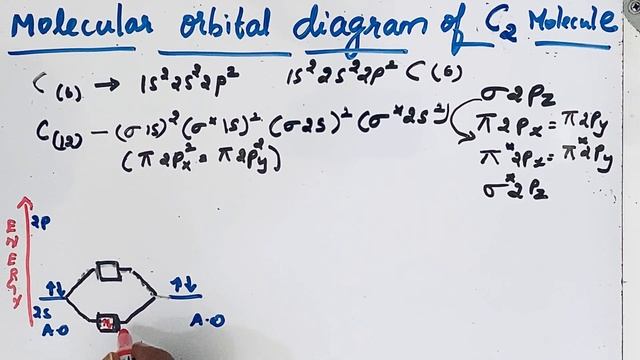 Molecular orbital diagram of C₂ Molecule
C(6) → 1s² 2s² 2p² 1s² 2s² 2p² C(6)
C(12) – (σ1s)² (σ*1s)² (σ2s)² (σ*2s²)
(π2Px² = π2Py²)
σ2Pz
π2Px = π2Py
π*2Px = π*2Py
σ*2Pz
ENERGY
2P
↑↓ ↑↓
2s
A·O A·O